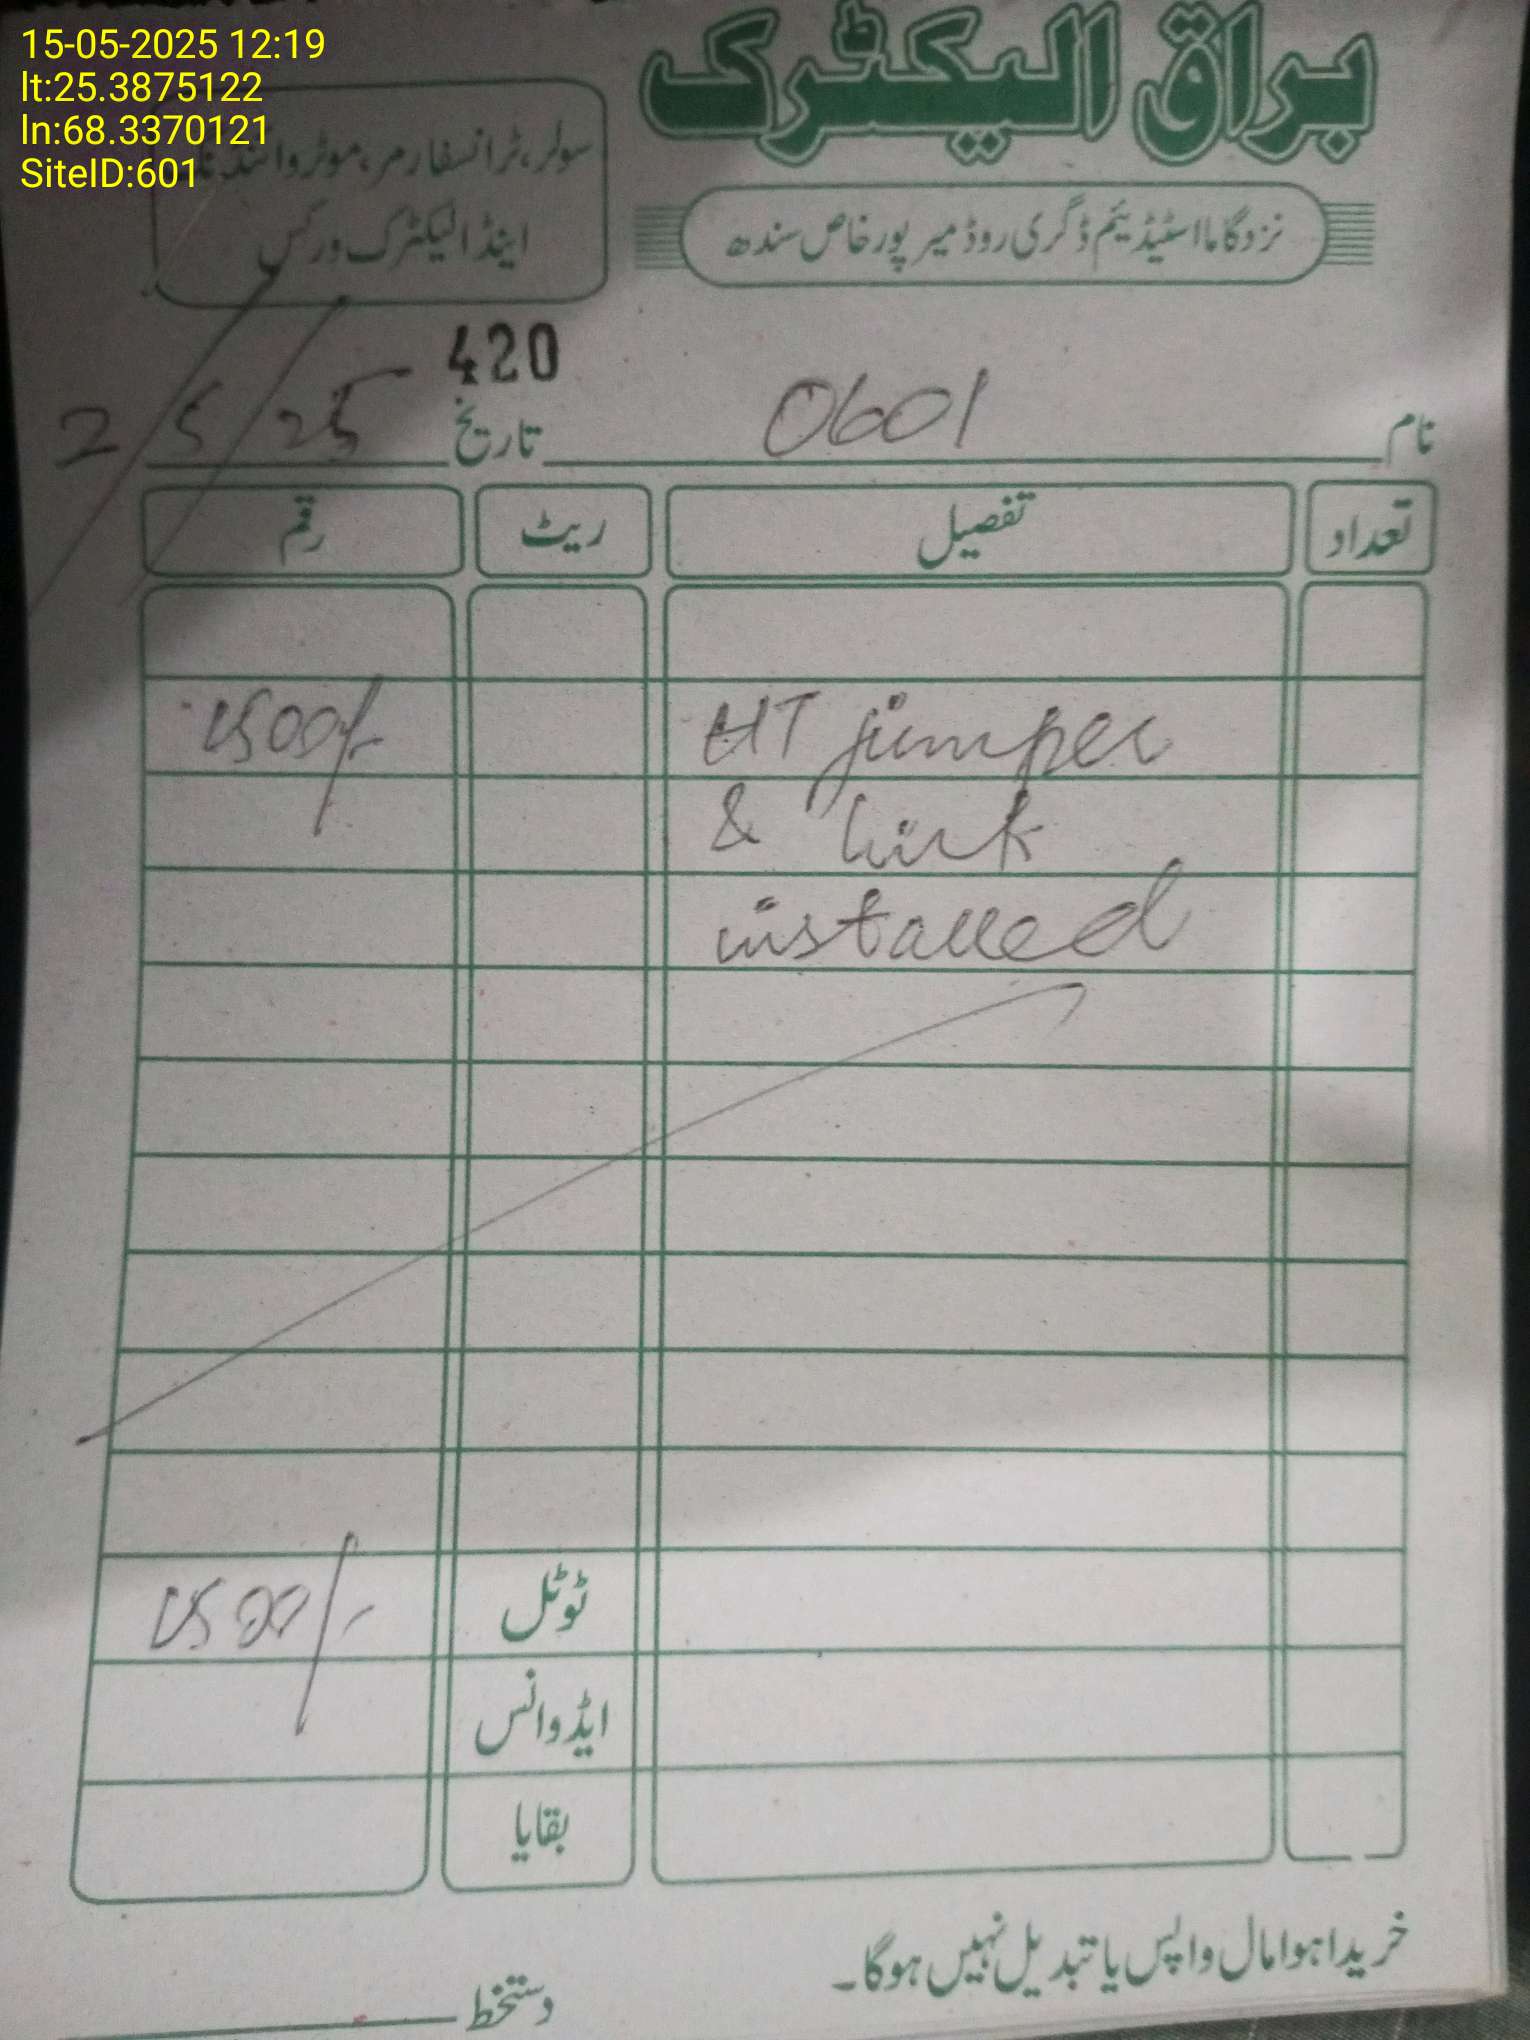 15-05-2025 12:19
lt:25.3875122
ln:68.3370121
SiteID:601
براق الیکٹرک
سولر، ٹرانسفارمر، موٹر وائنڈنگ
اینڈ الیکٹرک ورکس
نزد گاما اسٹیڈیم ڈگری روڈ میرپورخاص سندھ
420
نام 0601 تاریخ 2/5/25
تعداد تفصیل ریٹ رقم
HT jumper
& link
installed
ٹوٹل
ایڈوانس
بقایا
خریدا ہوا مال واپس یا تبدیل نہیں ہوگا۔
دستخط